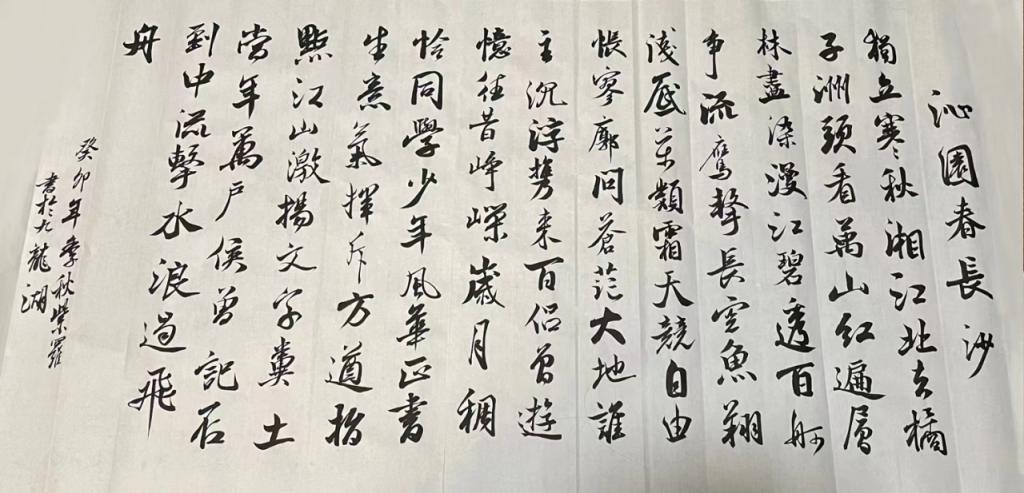 沁園春長沙
獨立寒秋湘江北去橘
子洲頭看萬山紅遍層
林盡染漫江碧透百舸
争流鷹擊長空魚翔
淺底萬類霜天競自由
悵寥廓問蒼茫大地誰
主沉浮携来百侣曾遊
憶往昔崢嶸歲月稠
恰同學少年風華正書
生意氣揮斥方遒指
點江山激揚文字糞土
當年萬户侯曾記否
到中流擊水浪遏飛
舟
癸卯年季秋紫羅
書於九龍湖